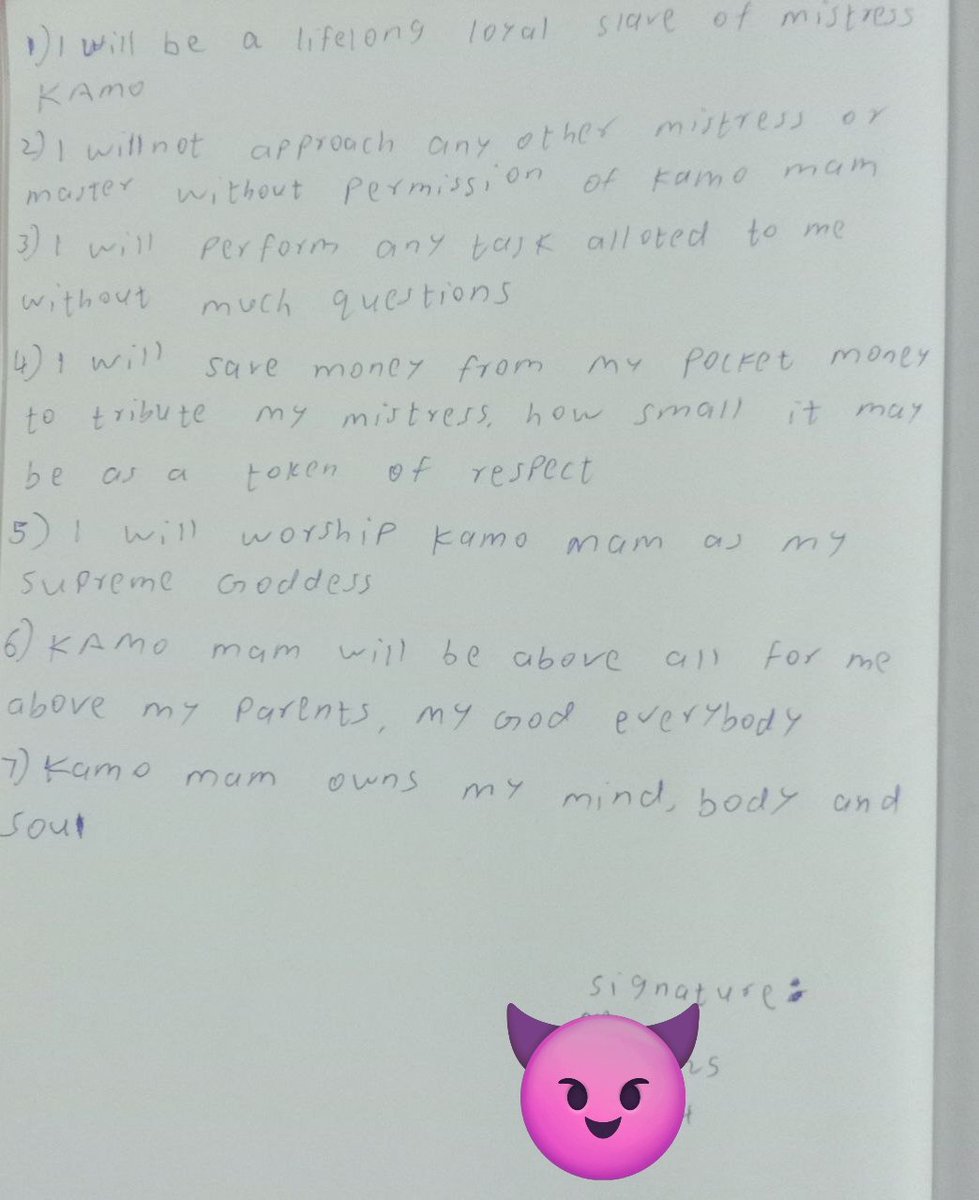 1) I will be a lifelong loyal slave of mistress
KAMO
2) I will not approach any other mistress or
master without permission of kamo mam
3) I will perform any task alloted to me
without much questions
4) I will save money from my pocket money
to tribute my mistress, how small it may
be as a token of respect
5) I will worship kamo mam as my
supreme Goddess
6) KAMO mam will be above all for me
above my parents, my God everybody
7) Kamo mam owns my mind, body and
soul
signature: